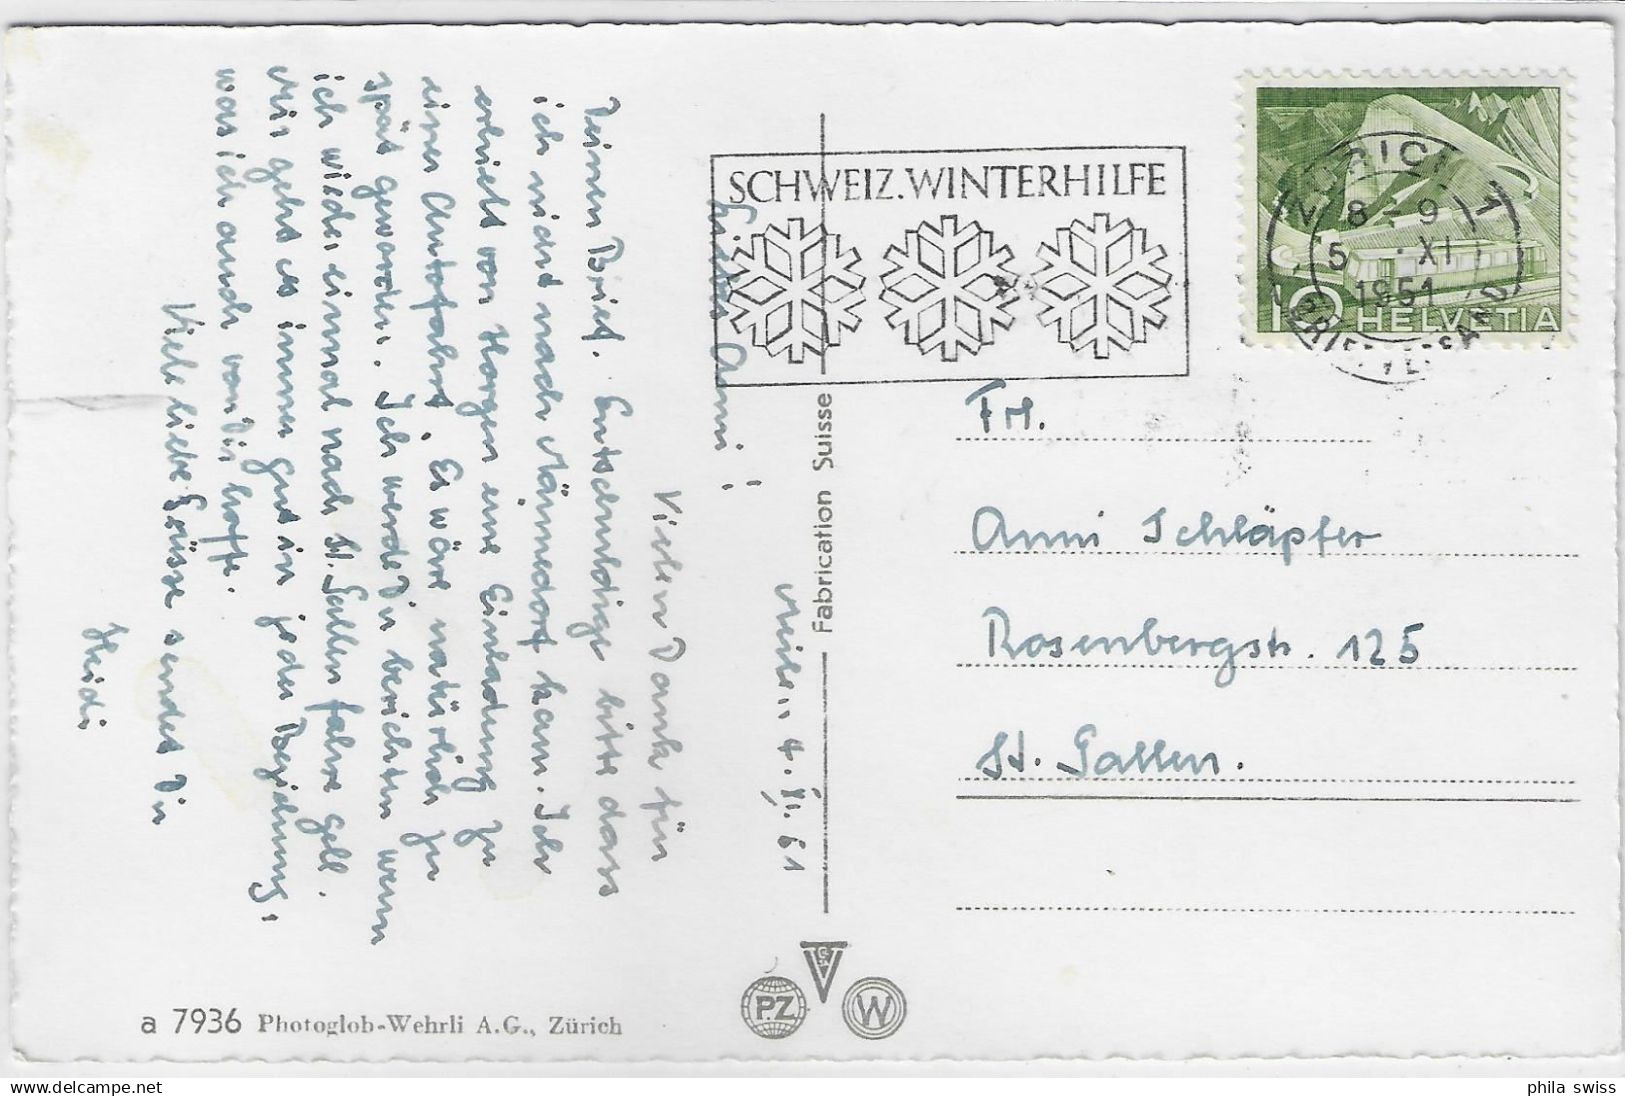 Meilen 4.XI.51
Liebes Anni!
Vielen Dank für
Deinen Brief. Entschuldige bitte dass
ich nicht nach Männedorf kam. Ich
erhielt von Horgen eine Einladung zu
einer Autofahrt. Es wäre natürlich zu
spät geworden. Ich werde Dir berichten wenn
ich wieder einmal nach St. Gallen fahre gell.
Mir geht es immer gut in jeder Beziehung,
was ich auch von Dir hoffe.
Viele liebe Grüsse sendet Dir
Heidi
a 7936 Photoglob-Wehrli A.G., Zürich
Fabrication Suisse
PZ
W
SCHWEIZ. WINTERHILFE
ZÜRICH 1
8-9
5. XI
1951
BRIEFVERSAND
10 HELVETIA
Frl.
Anni Schläpfer
Rosenbergstr. 125
St. Gallen.
phila swiss